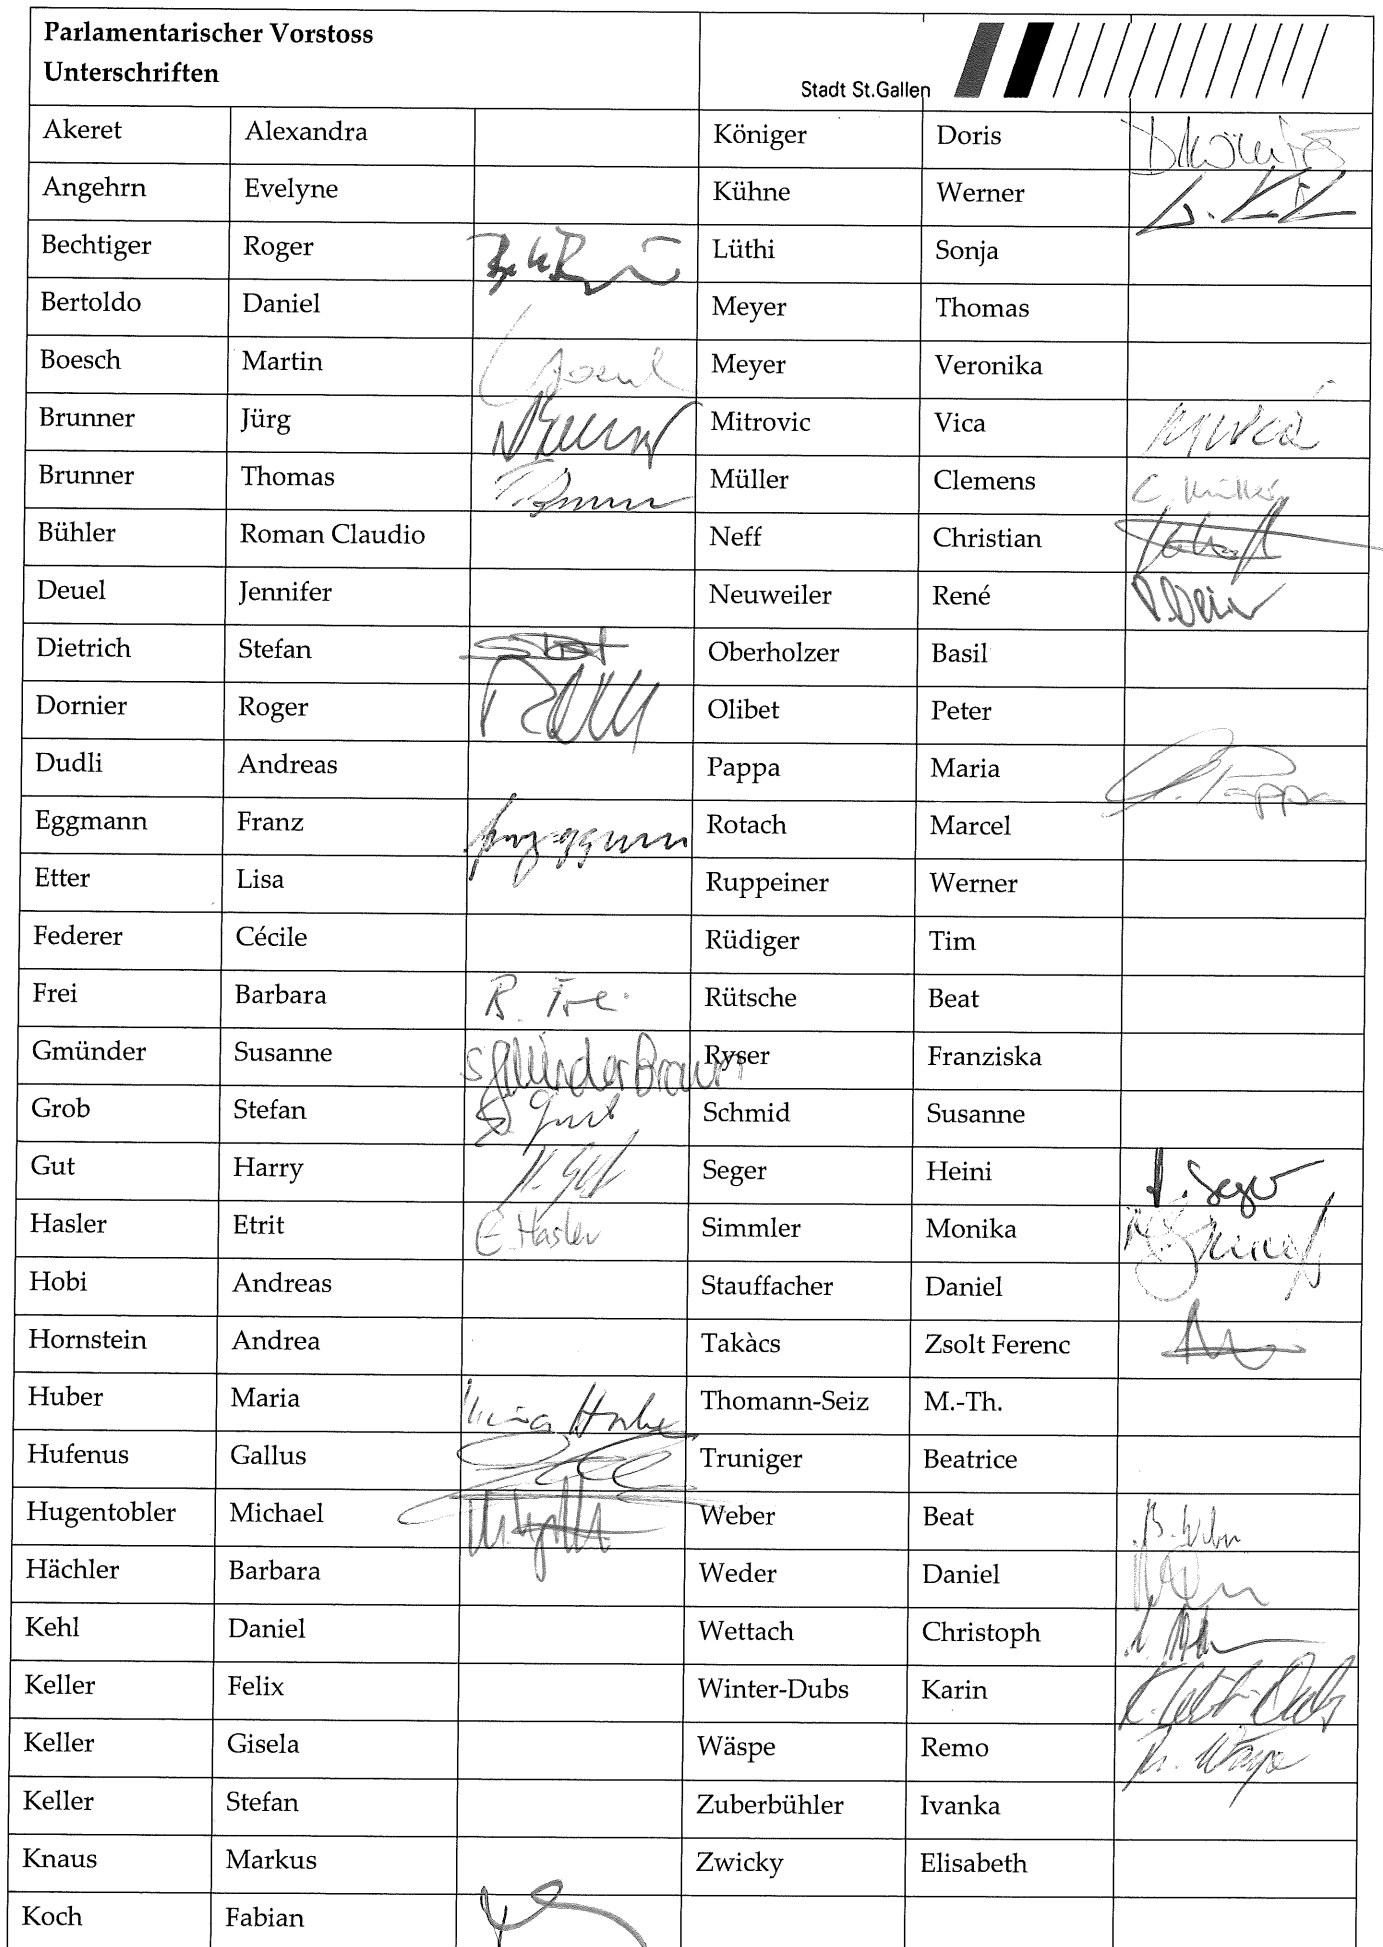 Parlamentarischer Vorstoss
Unterschriften
Stadt St.Gallen
Akeret Alexandra
Angehrn Evelyne
Bechtiger Roger
Bertoldo Daniel
Boesch Martin
Brunner Jürg
Brunner Thomas
Bühler Roman Claudio
Deuel Jennifer
Dietrich Stefan
Dornier Roger
Dudli Andreas
Eggmann Franz
Etter Lisa
Federer Cécile
Frei Barbara B. Frei
Gmünder Susanne
Grob Stefan
Gut Harry H. Gut
Hasler Etrit E. Hasler
Hobi Andreas
Hornstein Andrea
Huber Maria Maria Huber
Hufenus Gallus
Hugentobler Michael
Hächler Barbara
Kehl Daniel
Keller Felix
Keller Gisela
Keller Stefan
Knaus Markus
Koch Fabian
Königer Doris
Kühne Werner
Lüthi Sonja
Meyer Thomas
Meyer Veronika
Mitrovic Vica
Müller Clemens C. Müller
Neff Christian
Neuweiler René
Oberholzer Basil
Olibet Peter
Pappa Maria
Rotach Marcel
Ruppeiner Werner
Rüdiger Tim
Rütsche Beat
Ryser Franziska
Schmid Susanne
Seger Heini H. Seger
Simmler Monika
Stauffacher Daniel
Takàcs Zsolt Ferenc
Thomann-Seiz M.-Th.
Truniger Beatrice
Weber Beat B. Weber
Weder Daniel
Wettach Christoph
Winter-Dubs Karin
Wäspe Remo R. Wäspe
Zuberbühler Ivanka
Zwicky Elisabeth